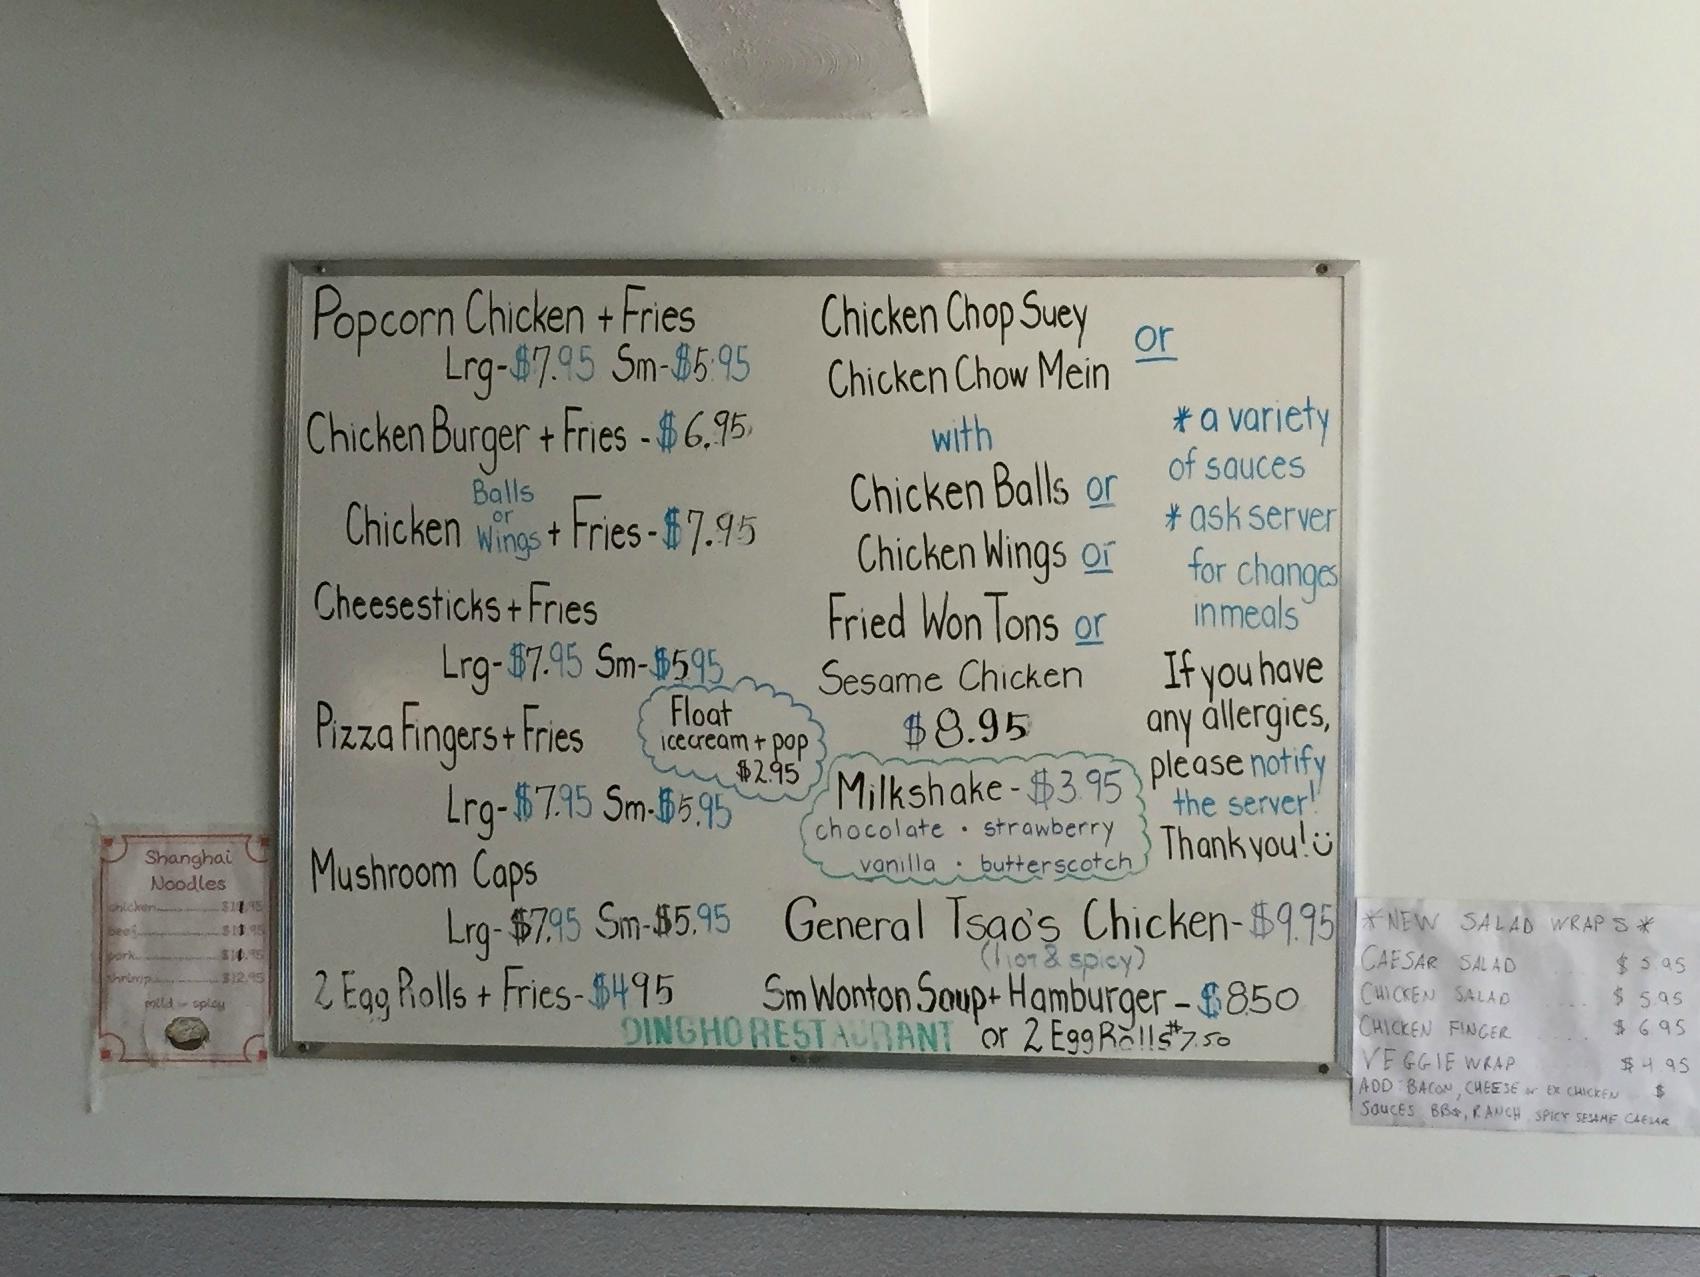 Popcorn Chicken + Fries
Lrg-$7.95 Sm-$5.95
Chicken Burger + Fries - $6.95
Chicken Balls or Wings + Fries - $7.95
Cheesesticks + Fries
Lrg-$7.95 Sm-$5.95
Pizza Fingers + Fries
Lrg-$7.95 Sm-$5.95
Mushroom Caps
Lrg-$7.95 Sm-$5.95
2 Egg Rolls + Fries-$4.95
Float
icecream + pop
$2.95
Chicken Chop Suey or
Chicken Chow Mein
with
Chicken Balls or
Chicken Wings or
Fried Won Tons or
Sesame Chicken
$8.95
Milkshake - $3.95
chocolate · strawberry
vanilla · butterscotch
General Tsao's Chicken-$9.95
(hot & spicy)
Sm Wonton Soup + Hamburger - $8.50
or 2 Egg Rolls $7.50
DINGHO RESTAURANT
* a variety
of sauces
* ask server
for changes
in meals
If you have
any allergies,
please notify
the server!
Thank you!
Shanghai
Noodles
chicken
beef
pork
shrimp $12.95
mild or spicy
*NEW SALAD WRAPS*
CAESAR SALAD $5.95
CHICKEN SALAD $5.95
CHICKEN FINGER $6.95
VEGGIE WRAP $4.95
ADD: BACON, CHEESE or EX CHICKEN $
SAUCES BBQ, RANCH SPICY SESAME CAESAR